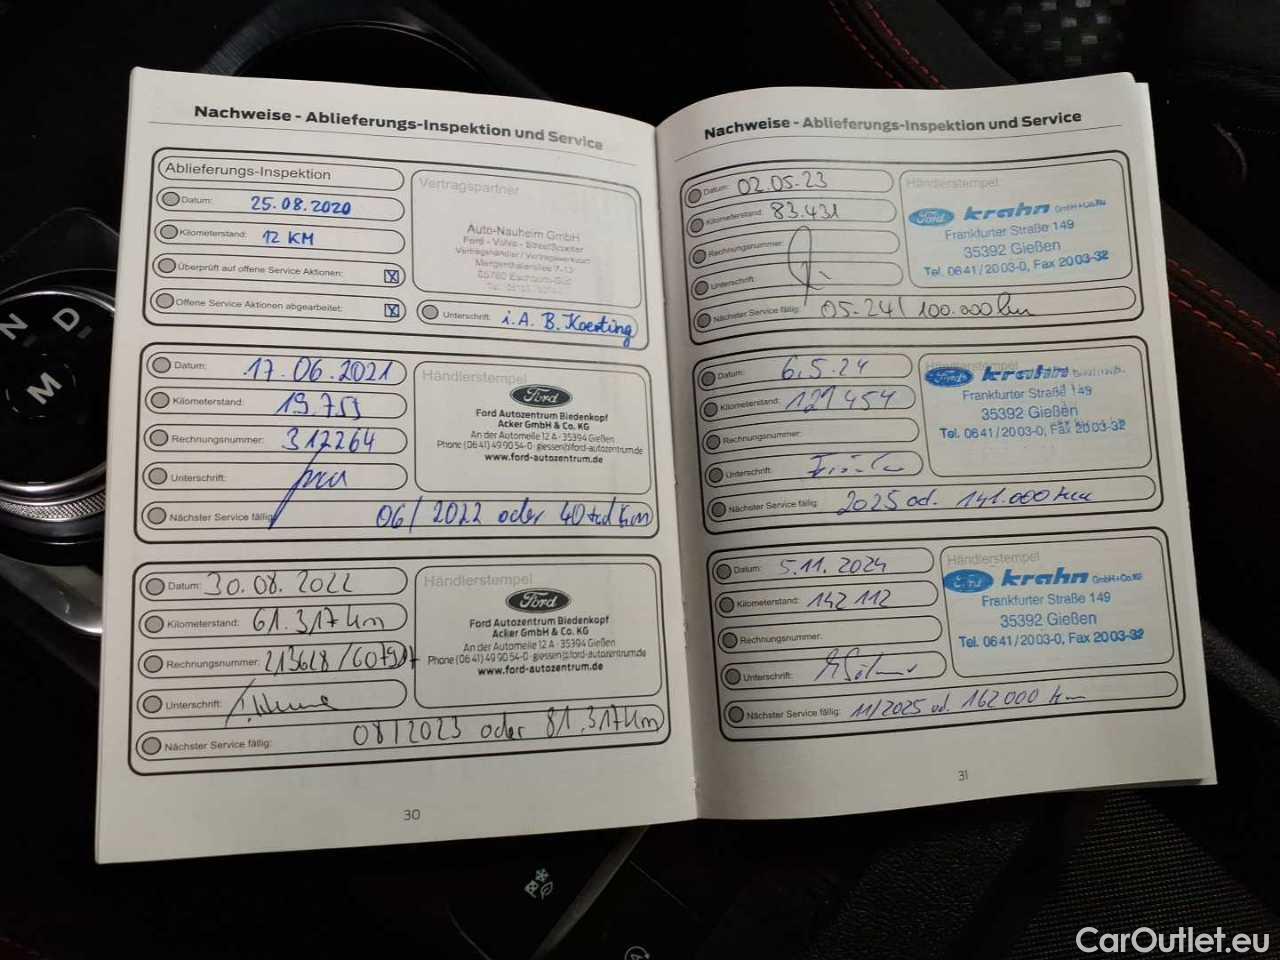 Nachweise - Ablieferungs-Inspektion und Service
Ablieferungs-Inspektion
Datum: 25.08.2020
Kilometerstand: 12 KM
Überprüft auf offene Service Aktionen: X
Offene Service Aktionen abgearbeitet: X
Vertragspartner
Auto-Nauheim GmbH
Ford - Volvo - StreetScooter
Vertragshändler / Vertragswerkstatt
Unterschrift: i.A. B. Koerting
Datum: 17.06.2021
Kilometerstand: 19.753
Rechnungsnummer: 312264
Unterschrift:
Nächster Service fällig: 06/2022 oder 40tsd Km
Händlerstempel
Ford
Ford Autozentrum Biedenkopf
Acker GmbH & Co. KG
An der Automeile 12 A · 35394 Gießen
Phone (06 41) 49 90 54-0 · giessen@ford-autozentrum.de
www.ford-autozentrum.de
Datum: 30.08.2022
Kilometerstand: 61.317 km
Rechnungsnummer:
Unterschrift:
Nächster Service fällig: 08/2023 oder 81.317 km
Händlerstempel
Ford
Ford Autozentrum Biedenkopf
Acker GmbH & Co. KG
An der Automeile 12 A · 35394 Gießen
Phone (06 41) 49 90 54-0 · giessen@ford-autozentrum.de
www.ford-autozentrum.de
30
Nachweise - Ablieferungs-Inspektion und Service
Datum: 02.05.23
Kilometerstand: 83.431
Rechnungsnummer:
Unterschrift:
Nächster Service fällig: 05.24 / 100.000 km
Händlerstempel
Ford krahn GmbH + Co. KG
Frankfurter Straße 149
35392 Gießen
Tel. 06 41 / 20 03-0, Fax 20 03-32
Datum: 6.5.24
Kilometerstand: 121 454
Rechnungsnummer:
Unterschrift:
Nächster Service fällig: 2025 od. 141.000 km
Händlerstempel
Ford krahn
Frankfurter Straße 149
35392 Gießen
Tel. 06 41 / 20 03-0, Fax 20 03-32
Datum: 5.11.2024
Kilometerstand: 142 112
Rechnungsnummer:
Unterschrift:
Nächster Service fällig: 11/2025 od. 162000 km
Händlerstempel
krahn GmbH + Co. KG
Frankfurter Straße 149
35392 Gießen
Tel. 06 41 / 20 03-0, Fax 20 03-32
31
N
D
M
CarOutlet.eu